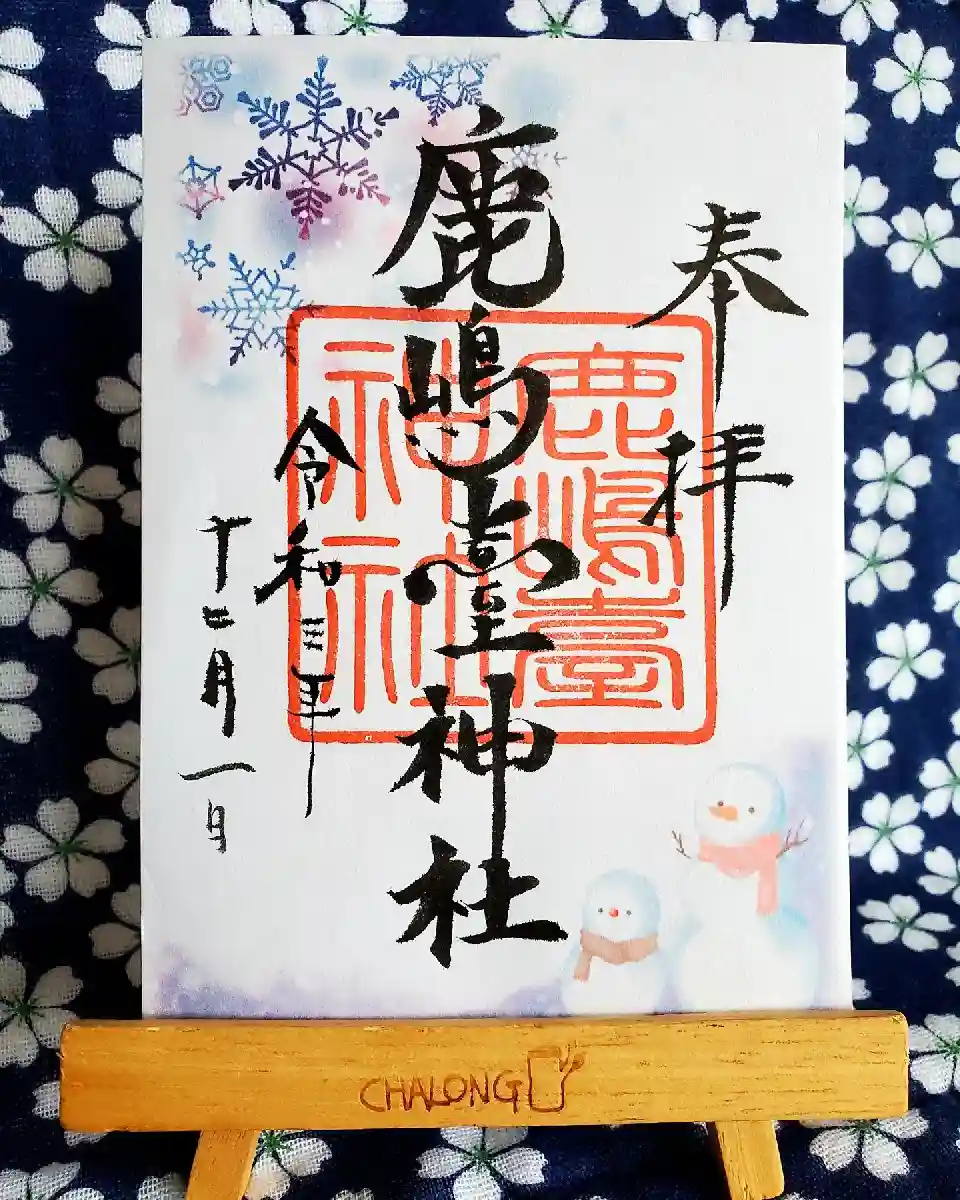 奉拝
鹿嶋臺神社
鹿嶋臺
神社
令和三年
十二月一日
CHALONG